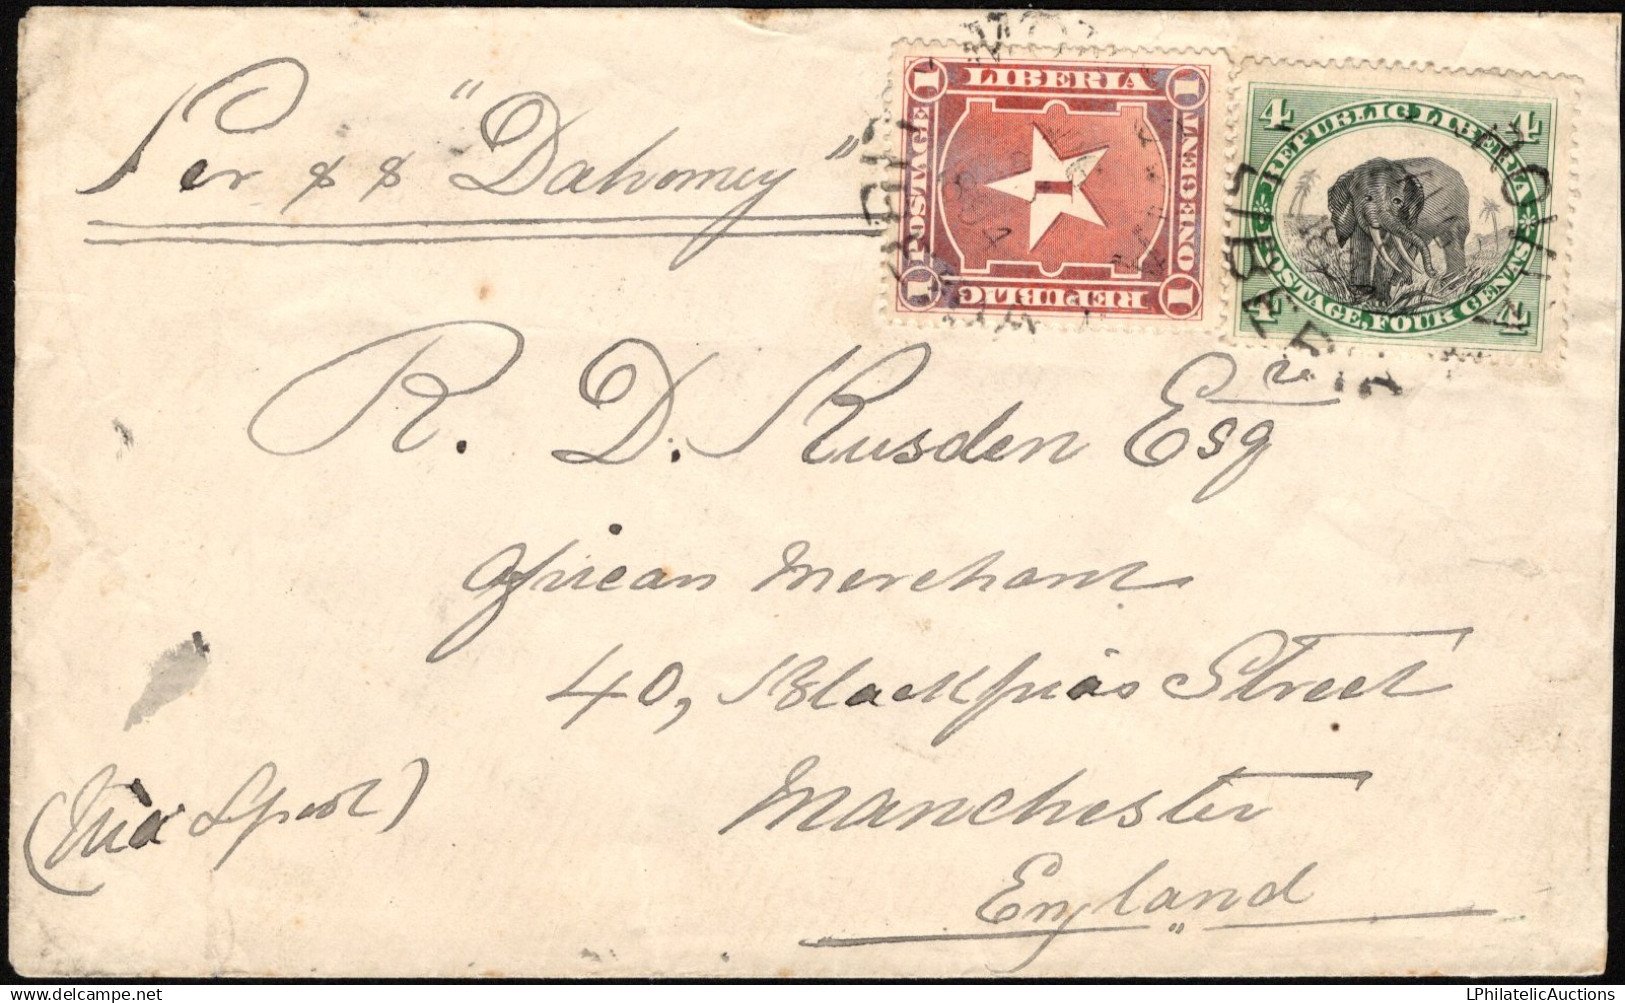 Per SS "Dahomey"
1 LIBERIA 1
POSTAGE
1
ONE CENT
1 REPUBLIC 1
4 4
REPUBLIC LIBERIA
POSTAGE, FOUR CENTS
4 4
LIBERIA
R. D. Rusden Esqre
African Merchant
40, Blackfrias Street
(Via Lpool)
Manchester
England
delcampe.net
LPhilatelicAuctions